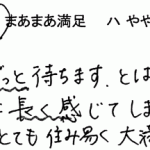 まあまあ満足 ハ やや
っと待ちます、とは
長く感じてしま
とても住み易く大満